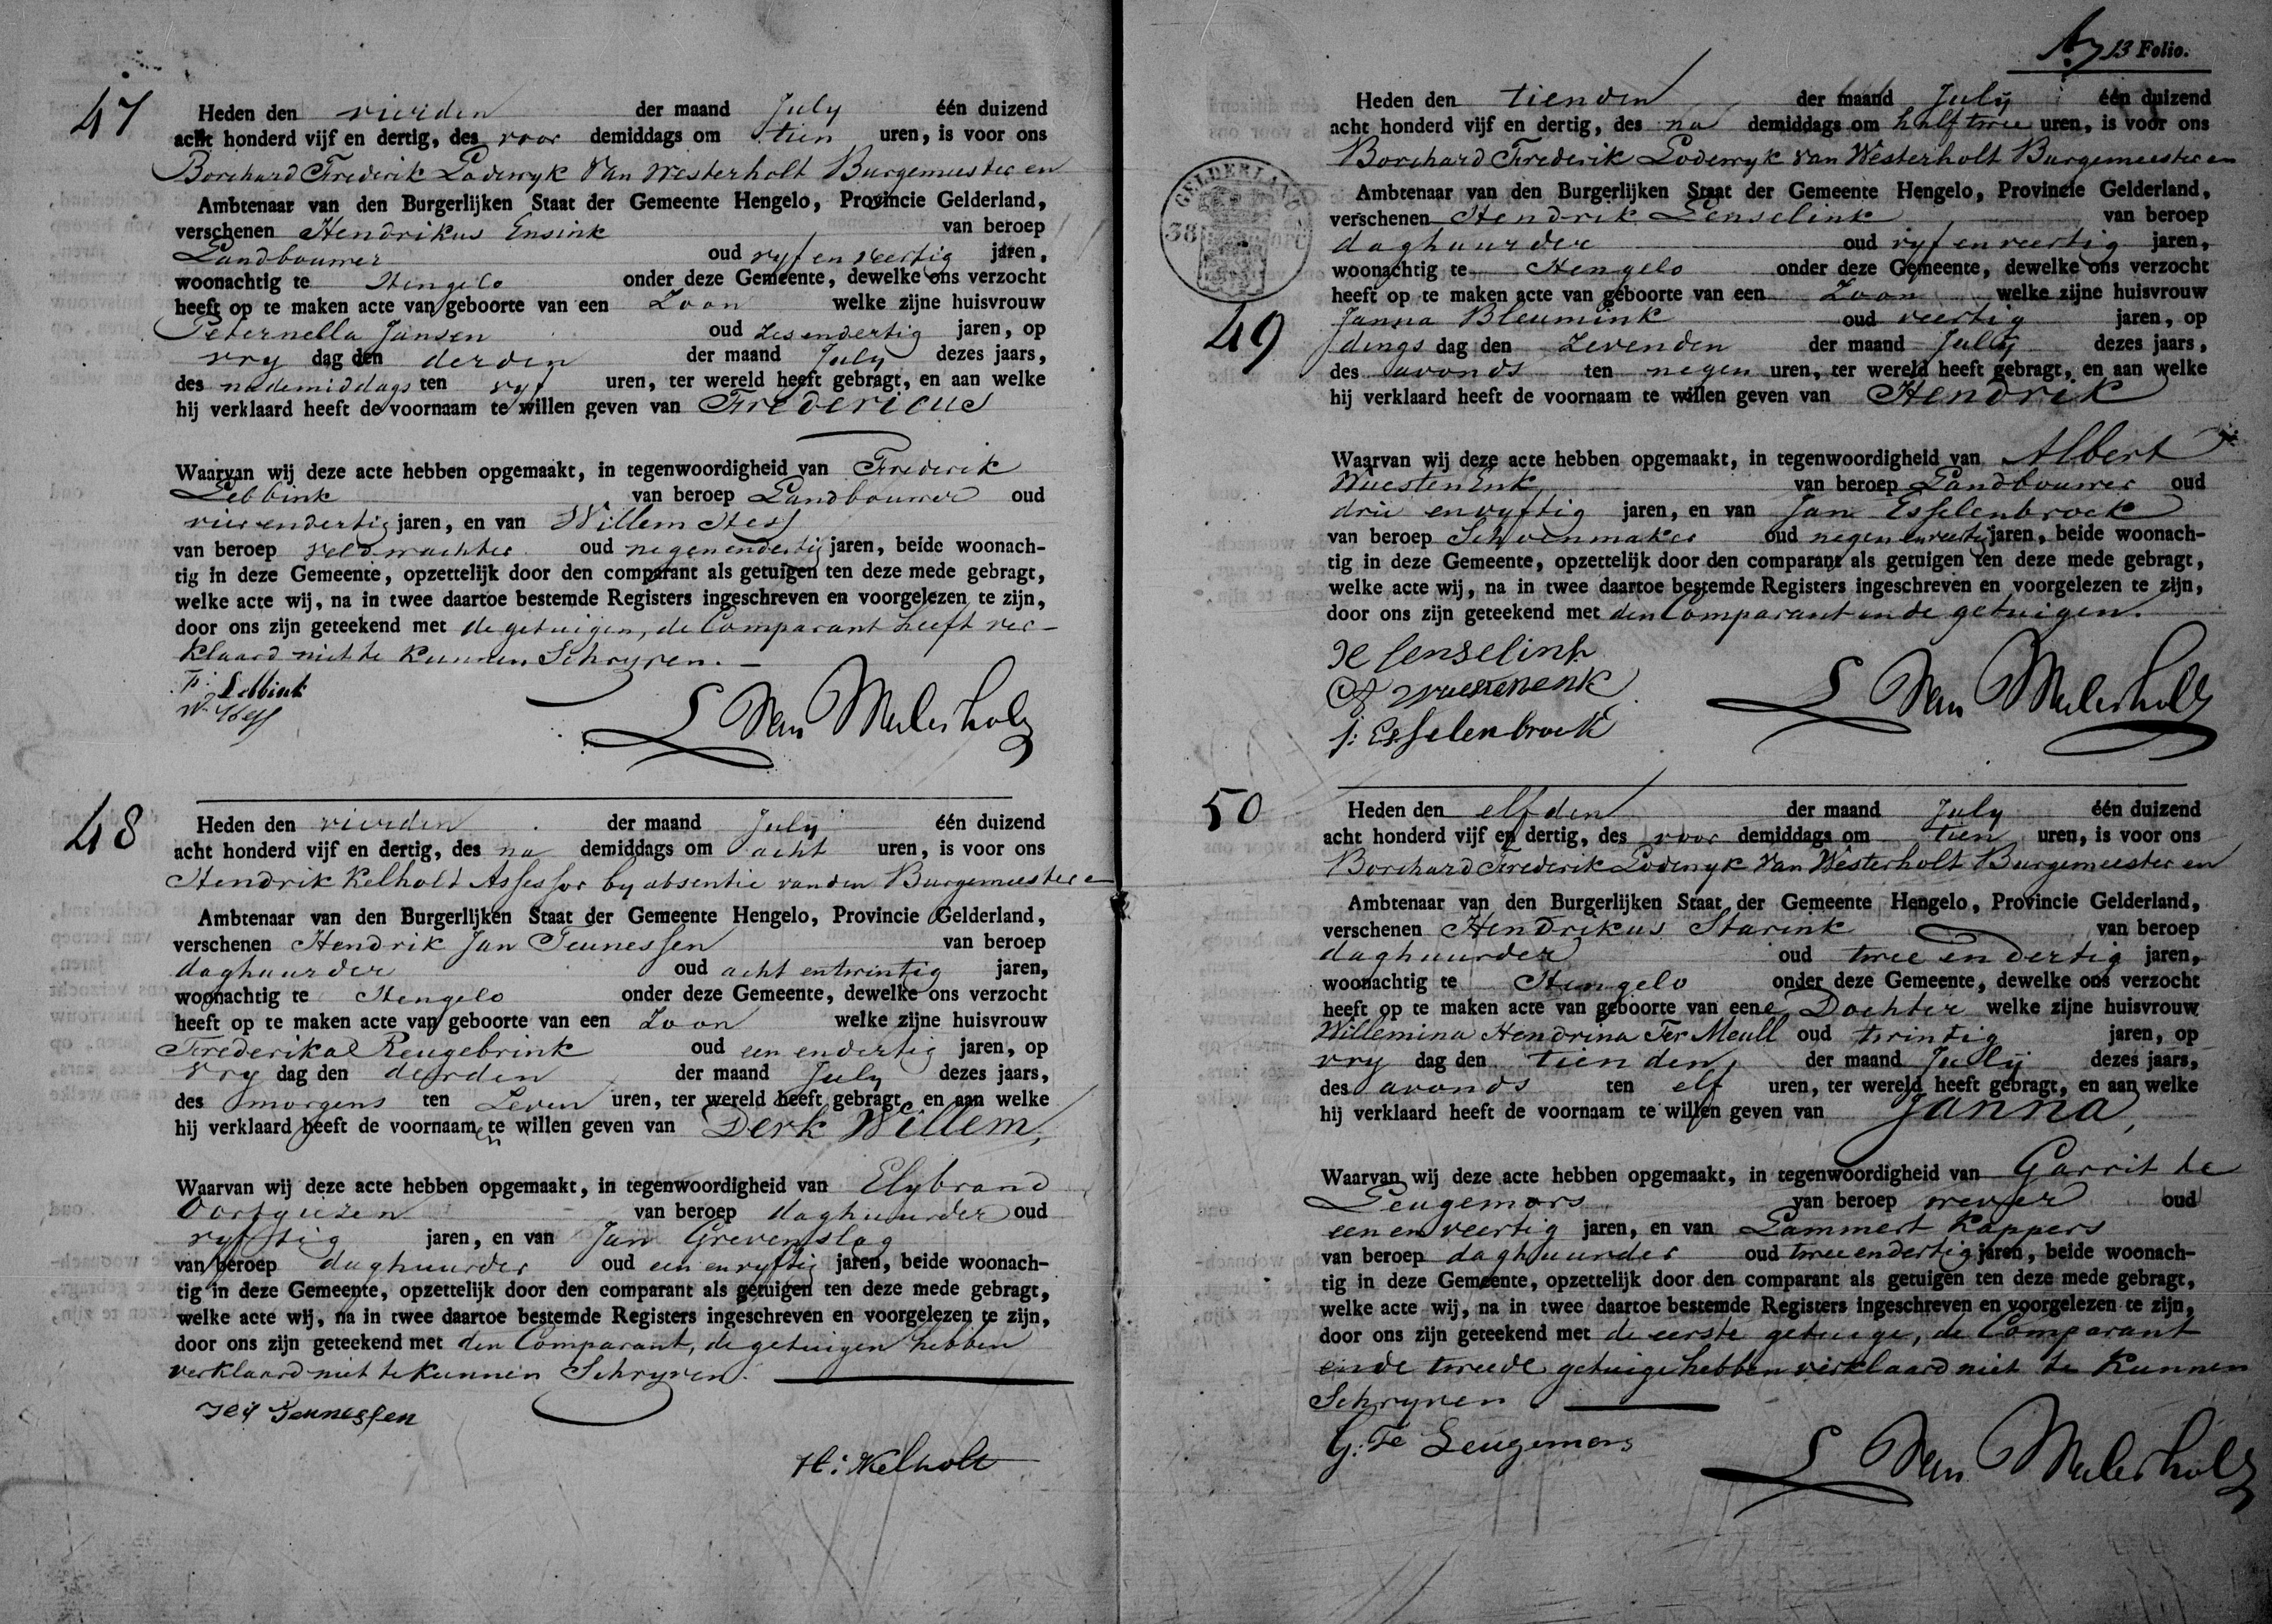 47
Heden den vierden der maand July één duizend
acht honderd vijf en dertig, des voor demiddags om tien uren, is voor ons
Borchard Frederik Lodewyk Van Westerholt Burgemeester en
Ambtenaar van den Burgerlijken Staat der Gemeente Hengelo, Provincie Gelderland,
verschenen Hendrikus Ensink van beroep
Landbouwer oud vyf en veertig jaren,
woonachtig te Hengelo onder deze Gemeente, dewelke ons verzocht
heeft op te maken acte van geboorte van een Zoon welke zijne huisvrouw
Peternella Jansen oud zes en dertig jaren, op
vry dag den derden der maand July dezes jaars,
des nademiddags ten vyf uren, ter wereld heeft gebragt, en aan welke
hij verklaard heeft de voornaam te willen geven van Fredericus
Waarvan wij deze acte hebben opgemaakt, in tegenwoordigheid van Frederik
Lebbink van beroep Landbouwer oud
vier en dertig jaren, en van Willem Hess
van beroep veldwachter oud negen en dertig jaren, beide woonach-
tig in deze Gemeente, opzettelijk door den comparant als getuigen ten deze mede gebragt,
welke acte wij, na in twee daartoe bestemde Registers ingeschreven en voorgelezen te zijn,
door ons zijn geteekend met de getuigen, de Comparant heeft ver-
klaard niet te kunnen Schryven.
F: Lebbink
W. Hess
L Van Westerholt
48
Heden den vierden der maand July één duizend
acht honderd vijf en dertig, des na demiddags om acht uren, is voor ons
Hendrik Kelholt Assessor by absentie van den Burgemeester en
Ambtenaar van den Burgerlijken Staat der Gemeente Hengelo, Provincie Gelderland,
verschenen Hendrik Jan Teunessen van beroep
daghuurder oud acht en twintig jaren,
woonachtig te Hengelo onder deze Gemeente, dewelke ons verzocht
heeft op te maken acte van geboorte van een Zoon welke zijne huisvrouw
Frederika Reugebrink oud een en dertig jaren, op
vry dag den derden der maand July dezes jaars,
des morgens ten Zeven uren, ter wereld heeft gebragt, en aan welke
hij verklaard heeft de voornaamen te willen geven van Derk Willem,
Waarvan wij deze acte hebben opgemaakt, in tegenwoordigheid van Elybrand
Oortgiezen van beroep daghuurder oud
vyftig jaren, en van Jan Grevenslag
van beroep daghuurder oud een en vyftig jaren, beide woonach-
tig in deze Gemeente, opzettelijk door den comparant als getuigen ten deze mede gebragt,
welke acte wij, na in twee daartoe bestemde Registers ingeschreven en voorgelezen te zijn,
door ons zijn geteekend met den Comparant, de getuigen hebben
verklaard niet te kunnen Schryven.
Teunessen
H: Kelholt
13 Folio.
GELDERLAND
38
49
Heden den tienden der maand July één duizend
acht honderd vijf en dertig, des na demiddags om half twee uren, is voor ons
Borchard Frederik Lodewyk Van Westerholt Burgemeester en
Ambtenaar van den Burgerlijken Staat der Gemeente Hengelo, Provincie Gelderland,
verschenen Hendrik Lenselink van beroep
daghuurder oud vyf en veertig jaren,
woonachtig te Hengelo onder deze Gemeente, dewelke ons verzocht
heeft op te maken acte van geboorte van een Zoon welke zijne huisvrouw
Janna Bleumink oud veertig jaren, op
dings dag den Zevenden der maand July dezes jaars,
des avonds ten negen uren, ter wereld heeft gebragt, en aan welke
hij verklaard heeft de voornaam te willen geven van Hendrik
Waarvan wij deze acte hebben opgemaakt, in tegenwoordigheid van Albert
Wuestenenk van beroep Landbouwer oud
drie en vyftig jaren, en van Jan Esselenbroek
van beroep Schoenmaker oud negen en veertig jaren, beide woonach-
tig in deze Gemeente, opzettelijk door den comparant als getuigen ten deze mede gebragt,
welke acte wij, na in twee daartoe bestemde Registers ingeschreven en voorgelezen te zijn,
door ons zijn geteekend met den Comparant en de getuigen.
H lenselink
A wuestenenk
j: Esselenbroek
L Van Westerholt
50
Heden den elfden der maand July één duizend
acht honderd vijf en dertig, des voor demiddags om tien uren, is voor ons
Borchard Frederik Lodewyk Van Westerholt Burgemeester en
Ambtenaar van den Burgerlijken Staat der Gemeente Hengelo, Provincie Gelderland,
verschenen Hendrikus Starink van beroep
daghuurder oud twee en dertig jaren,
woonachtig te Hengelo onder deze Gemeente, dewelke ons verzocht
heeft op te maken acte van geboorte van eene Dochter welke zijne huisvrouw
Willemina Hendrina Ter Meull oud twintig jaren, op
vry dag den tienden der maand July dezes jaars,
des avonds ten elf uren, ter wereld heeft gebragt, en aan welke
hij verklaard heeft de voornaam te willen geven van Janna,
Waarvan wij deze acte hebben opgemaakt, in tegenwoordigheid van Garrit te
Leugemors van beroep wever oud
een en veertig jaren, en van Lammert Kappers
van beroep daghuurder oud twee en dertig jaren, beide woonach-
tig in deze Gemeente, opzettelijk door den comparant als getuigen ten deze mede gebragt,
welke acte wij, na in twee daartoe bestemde Registers ingeschreven en voorgelezen te zijn,
door ons zijn geteekend met de eerste getuige, de Comparant
en de tweede getuige hebben verklaard niet te kunnen
Schryven
G: Te Leugemors
L Van Westerholt